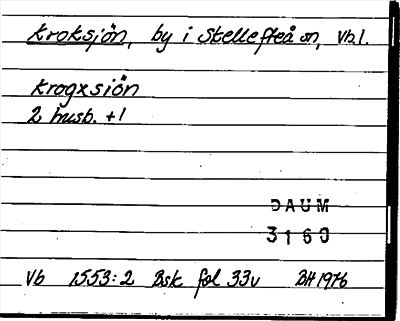 Kroksjön, by i Skellefteå sn, Vb l.
Krogxsiön
2 husb. + 1
DAUM
3160
Vb 1553:2 Bsk fol 33v BH 1976